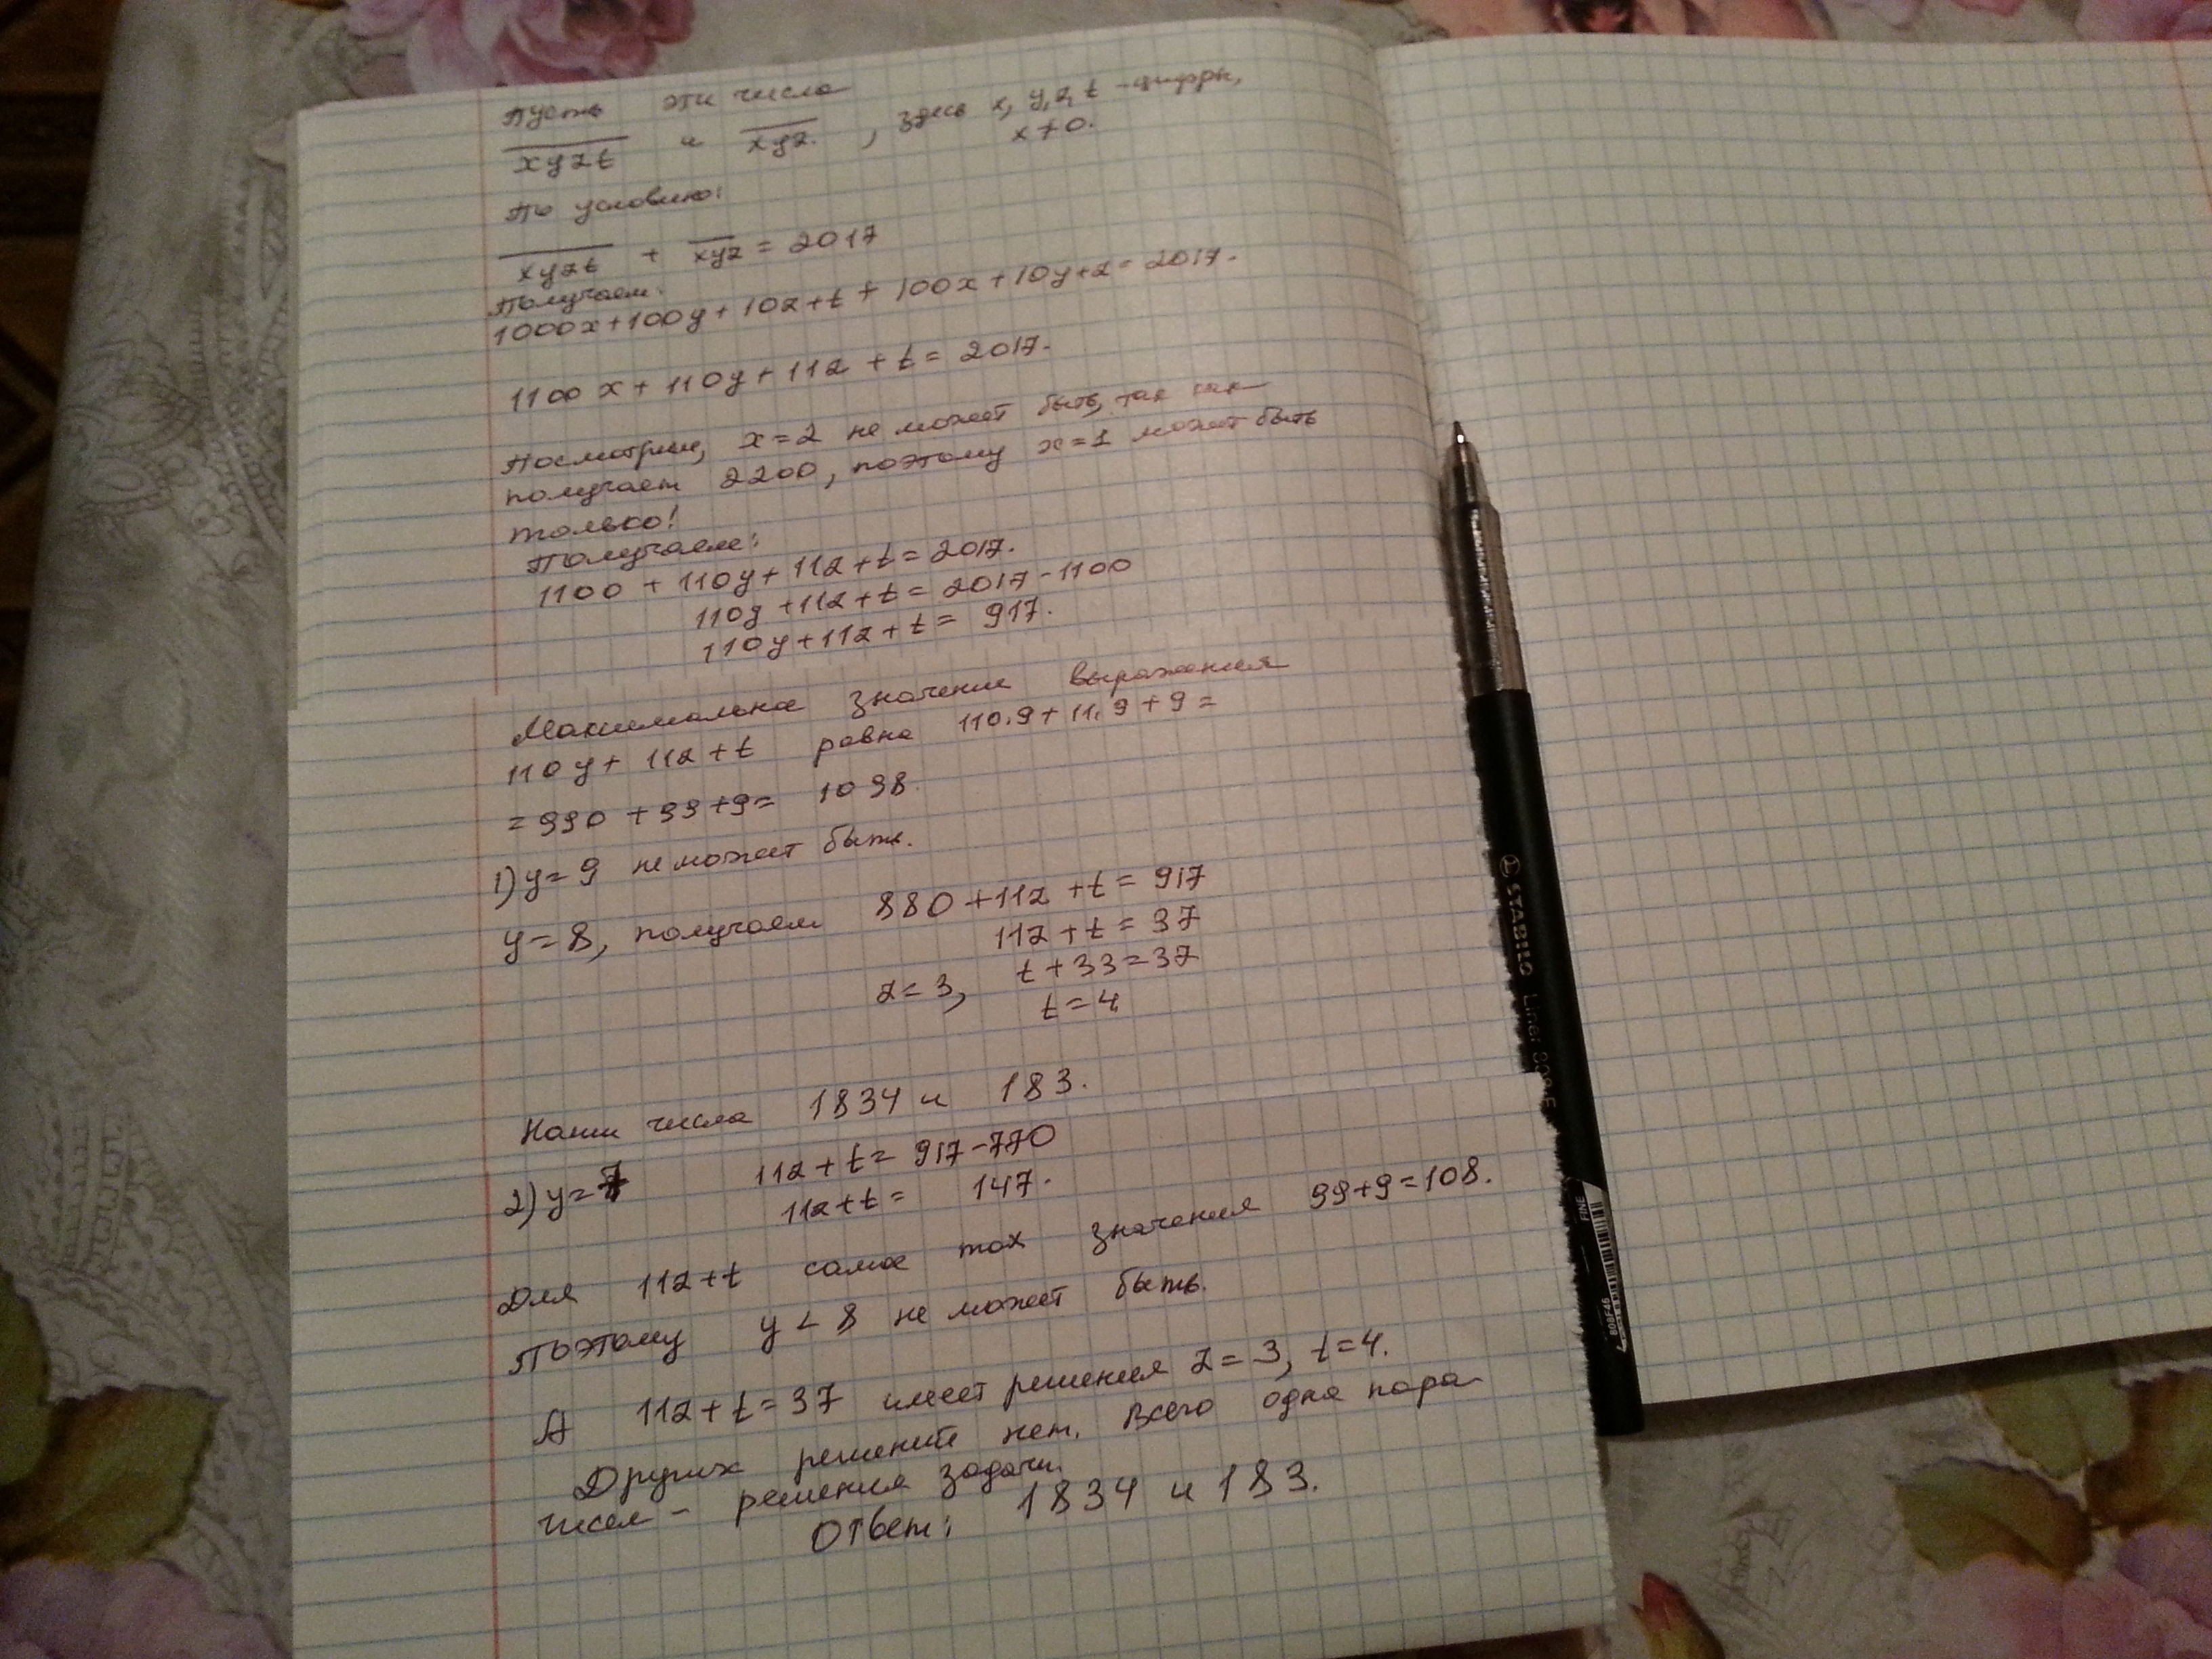 Пусть эти числа
xyzt и xyz, здесь x, y, z, t - цифры,
x≠0.
По условию:
xyzt + xyz = 2017
Получаем:
1000x+100y+10z+t+100x+10y+z=2017.
1100x+110y+11z+t=2017.
Посмотрим, x=2 не может быть, так как
получает 2200, поэтому x=1 может быть
только!
Получаем:
1100+110y+11z+t=2017.
110y+11z+t=2017-1100
110y+11z+t=917.
Максимальное значение выражения
110y+11z+t равно 110.9+11.9+9=
=990+99+9=1098.
1) y=9 не может быть.
y=8, получаем 880+11z+t=917
11z+t=37
z=3, t+33=37
t=4
Наши числа 1834 и 183.
2) y=7 11z+t=917-770
11z+t=147.
Для 11z+t самое max значения 99+9=108.
Поэтому y<8 не может быть.
А 11z+t=37 имеет решения z=3, t=4.
Других решений нет. Всего одна пара
чисел - решения задачи.
Ответ: 1834 и 183.
STABILO Liner 808 F
FINE
808F46